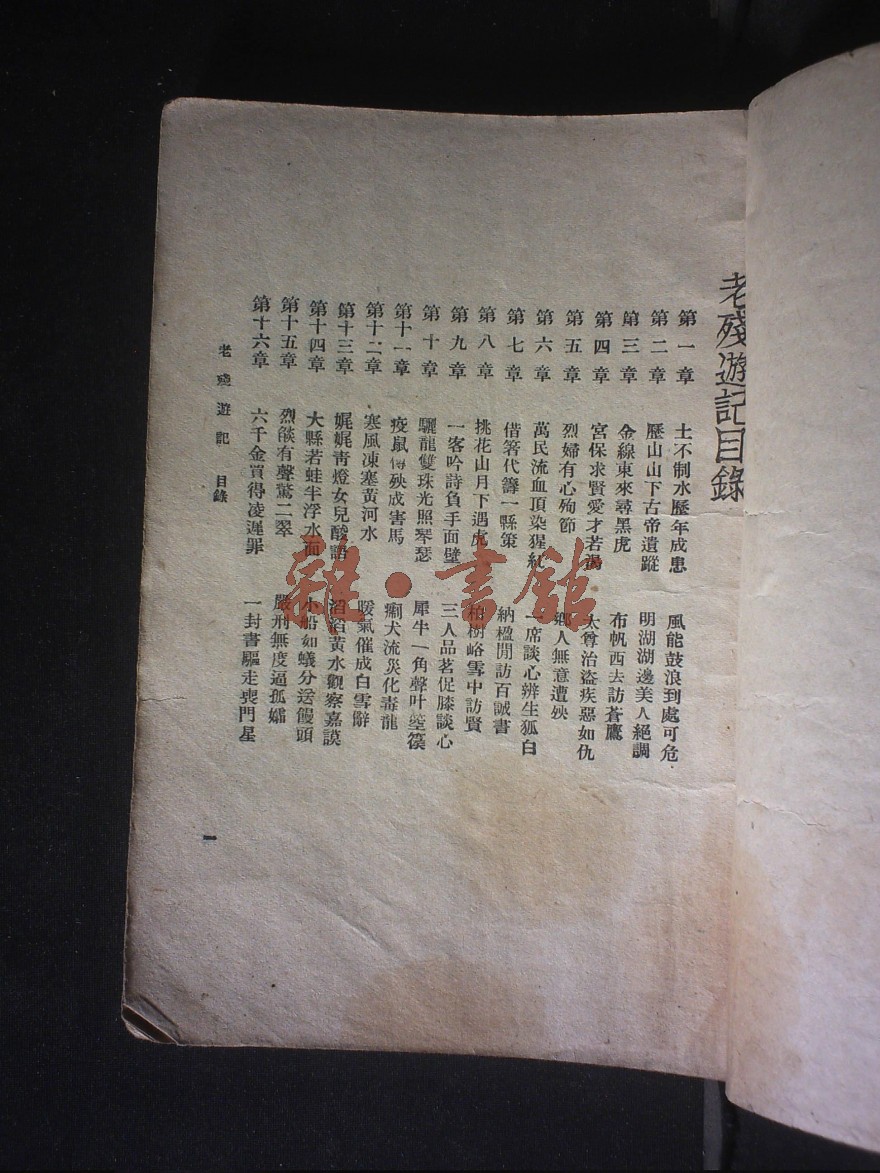 老殘遊記目錄
第一章 土不制水歷年成患 風能鼓浪到處可危
第二章 歷山山下古帝遺蹤 明湖湖邊美人絕調
第三章 金線東來尋黑虎 布帆西去訪蒼鷹
第四章 宮保求賢愛才若渴 太尊治盜疾惡如仇
第五章 烈婦有心殉節 鄉人無意遭殃
第六章 萬民流血頂染猩紅 一席談心辨生狐白
第七章 借箸代籌一縣策 納楹閒訪百誠書
第八章 桃花山月下遇虎 柏樹峪雪中訪賢
第九章 一客吟詩負手面壁 三人品茗促膝談心
第十章 驪龍雙珠光照琴瑟 犀牛一角聲叶箜篌
第十一章 疫鼠傳殃成害馬 瘈犬流災化毒龍
第十二章 寒風凍塞黃河水 暖氣催成白雪辭
第十三章 娓娓靑燈女兒酸語 滔滔黃水觀察嘉謨
第十四章 大縣若蛙半浮水面 小船如蟻分送饅頭
第十五章 烈燄有聲驚二翠 嚴刑無度逼孤孀
第十六章 六千金買得凌遲罪 一封書驅走喪門星
老殘遊記 目錄
一
雜·書館